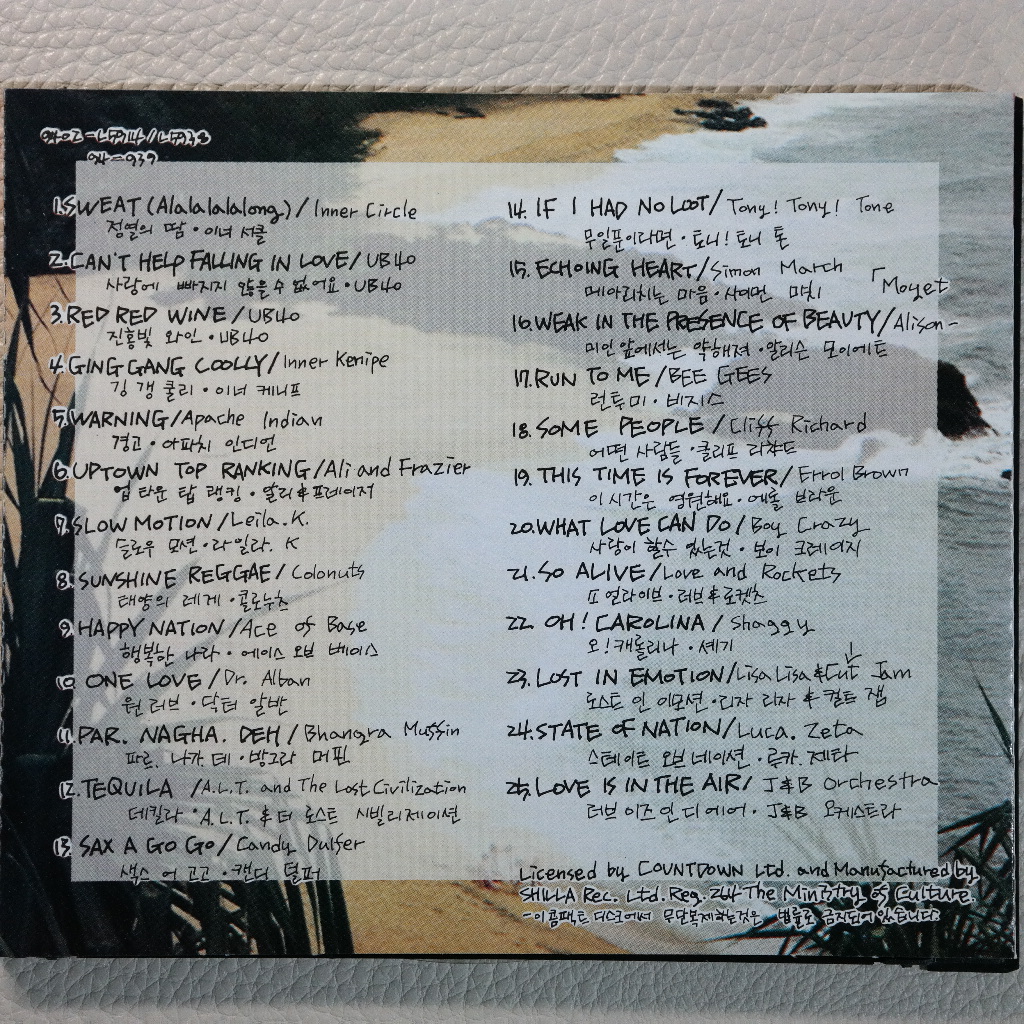 1.SWEAT (Alalalalalong) / Inner Circle
정열의 땀·이너 서클
2.CAN'T HELP FALLING IN LOVE/UB40
사랑에 빠지지 않을 수 없어요·UB40
3.RED RED WINE/UB40
진홍빛 와인·UB40
4.GING GANG COOLLY/Inner Kenipe
깅 갱 쿨리·이너 케니프
5.WARNING/Apache Indian
경고·아파치 인디언
6.UPTOWN TOP RANKING/Ali and Frazier
업 타운 탑 랭킹·알리&프레이저
7.SLOW MOTION/Leila.K.
슬로우 모션·라일라. K
8.SUNSHINE REGGAE/Colonuts
태양의 레게·콜로누츠
9.HAPPY NATION/Ace of Base
행복한 나라·에이스 오브 베이스
10.ONE LOVE/Dr. Alban
원 러브·닥터 알반
11.PAR. NAGHA. DEH/Bhangra Muffin
파르. 나가 데·방그라 머핀
12.TEQUILA /A.L.T. and The Lost Civilization
데킬라·A.L.T. & 더 로스트 시빌리제이션
13.SAX A GO GO/Candy Dulfer
색스 어 고고·캔디 덜퍼
14.IF I HAD NO LOOT/Tony! Tony! Tone
무일푼이라면·토니! 토니 톤
15.ECHOING HEART/Simon March
메아리치는 마음·사이먼 먀치
「Moyet
16.WEAK IN THE PRESENCE OF BEAUTY/Alison-
미인 앞에서는 약해져·알리슨 모이에트
17.RUN TO ME/BEE GEES
런투미·비지스
18.SOME PEOPLE/Cliff Richard
어떤 사람들·클리프 리챠드
19.THIS TIME IS FOREVER/Errol Brown
이 시간은 영원해요·에롤 브라운
20.WHAT LOVE CAN DO/Boy Crazy
사랑이 할수 있는것·보이 크레이지
21.SO ALIVE/Love and Rockets
쏘 얼라이브·러브&로켓츠
22.OH! CAROLINA/Shaggy
오!캐롤리나·섀기
23.LOST IN EMOTION/Lisa Lisa & Cult Jam
로스트 인 이모션·리자 리자 & 컬트 잼
24.STATE OF NATION/Luca. Zeta
스테이트 오브 네이션·루카. 제타
25.LOVE IS IN THE AIR/ J&B Orchestra
러브 이즈 인 디 에어·J&B 오케스트라
Licensed by COUNTDOWN Ltd. and Manufactured by
SHILLA Rec. Ltd. Reg. 264 The Ministry of Culture.
-이 콤팩트 디스크에서 무단복제하는것은 법률로 금지되어 있습니다.